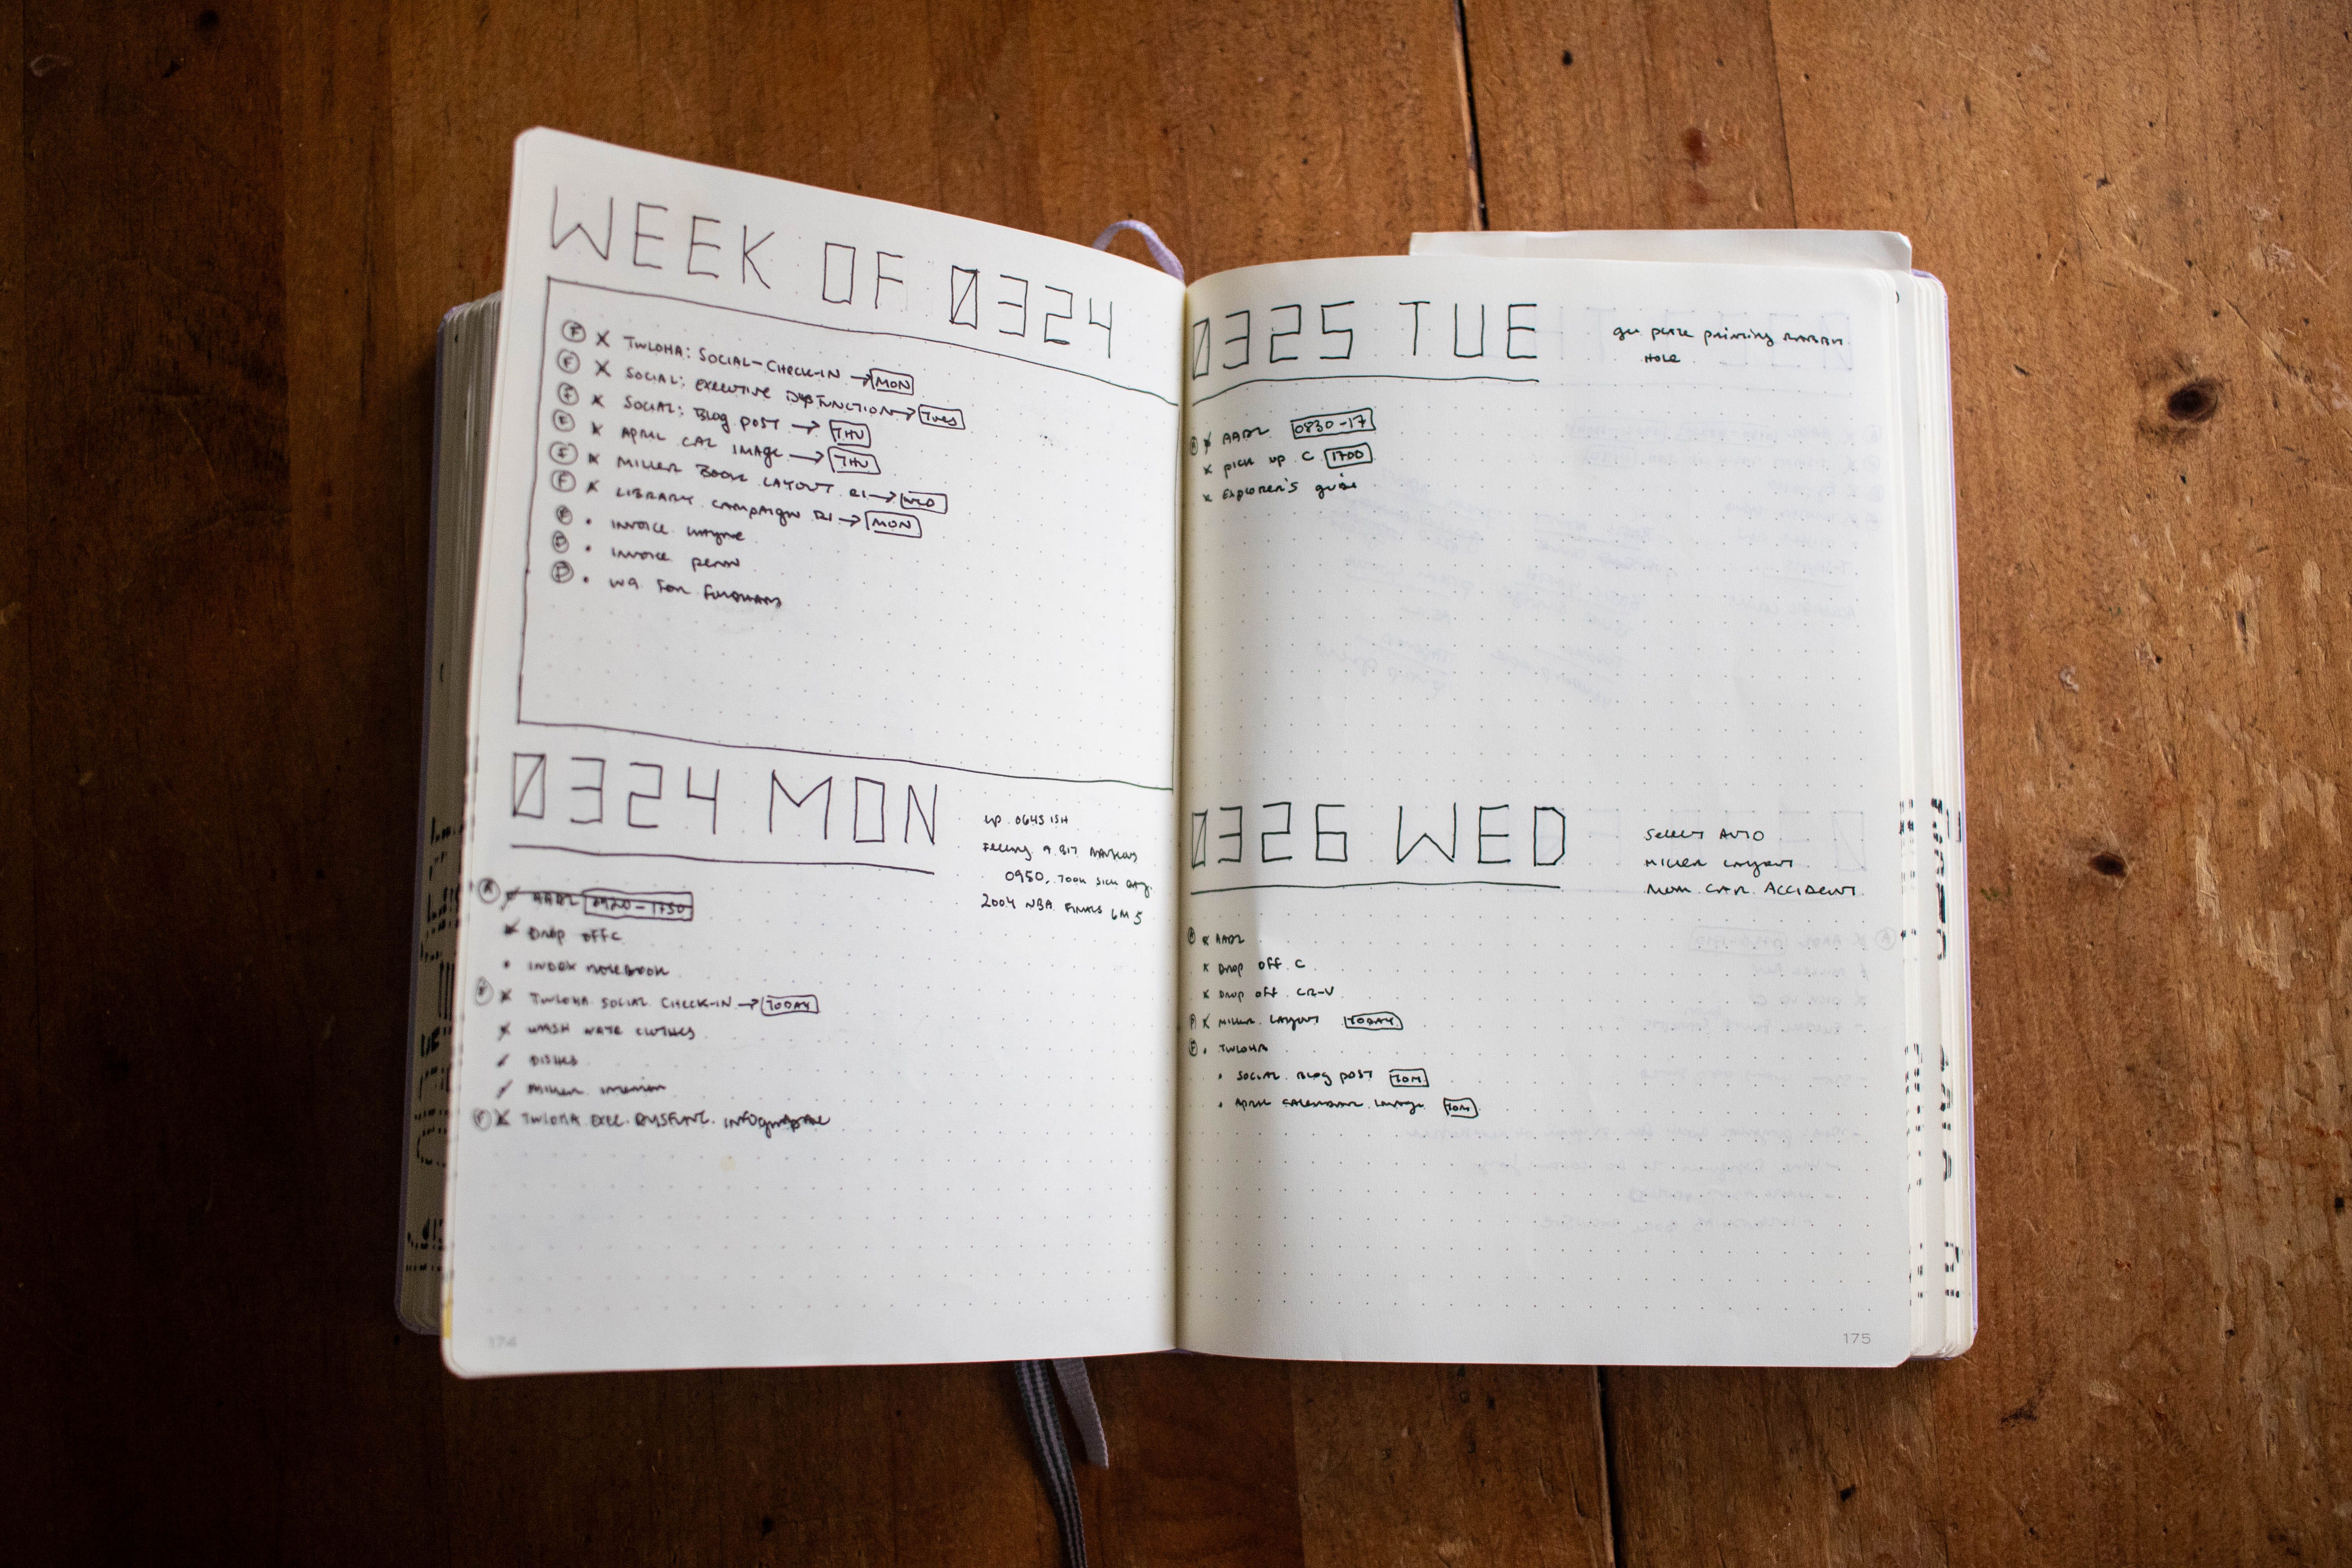 WEEK OF 0324
F × TWLOHA: SOCIAL-CHECK-IN → MON
F × SOCIAL: EXECUTIVE DYSFUNCTION → TUES
F × SOCIAL: BLOG POST → THU
F × APRIL CAL IMAGE → THU
F × MILLER BOOK LAYOUT R1 → WED
F × LIBRARY CAMPAIGN R1 → MON
• INVOICE WAYNE
• INVOICE PENN
• W9 FOR
0324 MON
UP 0645 ISH
FEELING A BIT
0950, TOOK SICK DAY.
2004 NBA FINALS GM 5
A AADL 0920-1750
× DROP OFF C
• INDEX NOTEBOOK
F × TWLOHA SOCIAL CHECK-IN → TODAY
× WASH CLOTHES
/ DISHES
/ MILLER
F × TWLOHA EXEC. DYSFUNC. INFOGRAPHIC
174
0325 TUE
PRINTING RABBIT
HOLE
A × AADL 0830-17
× PICK UP C 1700
× EXPLORER'S GUIDE
0326 WED
SELECT AUTO
MILLER LAYOUT
MOM CAR ACCIDENT
A × AADL
× DROP OFF C
× DROP OFF CR-V
F × MILLER LAYOUT TODAY
F • TWLOHA
• SOCIAL BLOG POST TOM
• APRIL CALENDAR IMAGE TOM
175